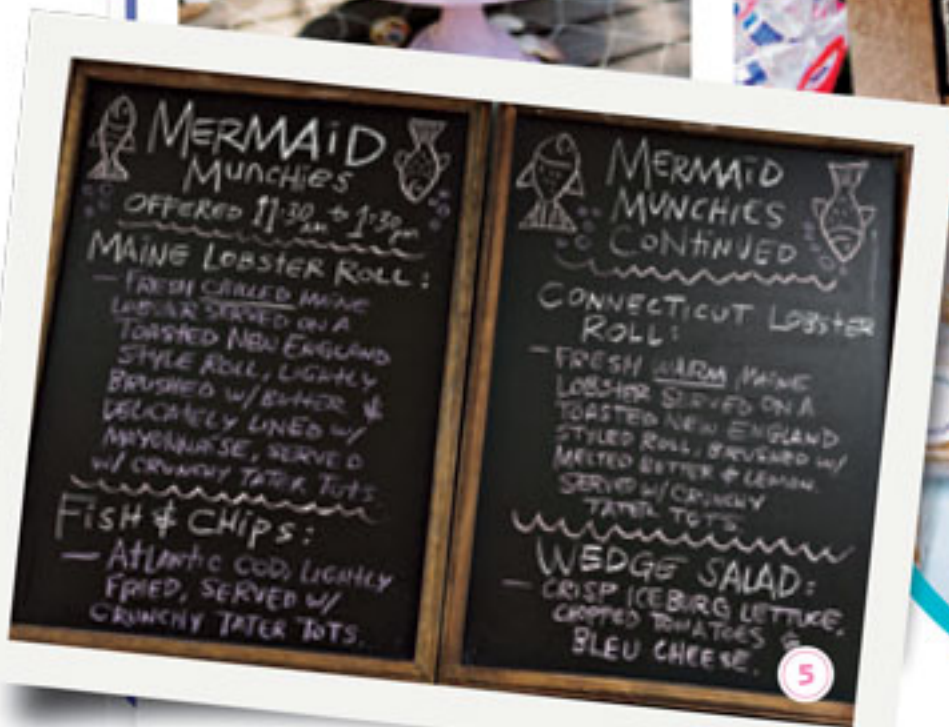 MERMAID
MUNCHIES
OFFERED 11:30am to 1:30pm
MAINE LOBSTER ROLL:
— FRESH CHILLED MAINE
LOBSTER SERVED ON A
TOASTED NEW ENGLAND
STYLE ROLL, LIGHTLY
BRUSHED W/ BUTTER &
DELICATELY LINED W/
MAYONNAISE, SERVED
W/ CRUNCHY TATER TOTS
FISH & CHIPS:
— ATLANTIC COD, LIGHTLY
FRIED, SERVED W/
CRUNCHY TATER TOTS.
MERMAID
MUNCHIES
CONTINUED
CONNECTICUT LOBSTER
ROLL:
— FRESH WARM MAINE
LOBSTER SERVED ON A
TOASTED NEW ENGLAND
STYLED ROLL, BRUSHED W/
MELTED BUTTER & LEMON.
SERVED W/ CRUNCHY
TATER TOTS
WEDGE SALAD:
— CRISP ICEBURG LETTUCE,
TOMATOES &
BLEU CHEESE.
5